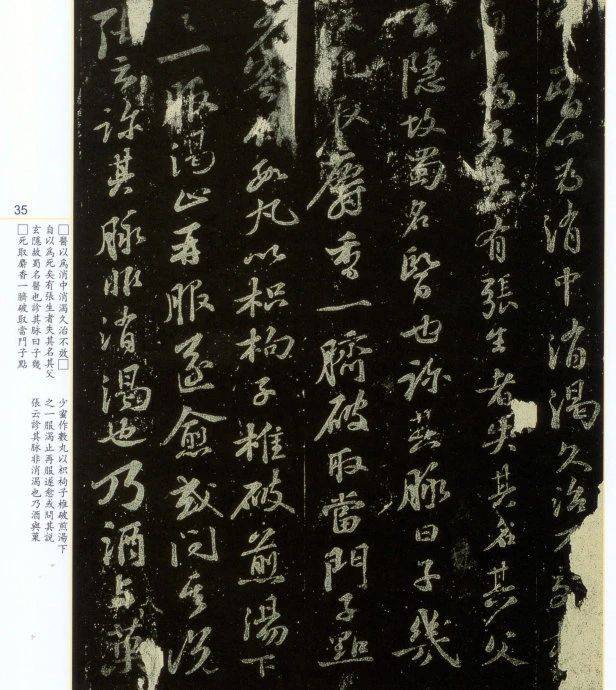 醫以為消中消渴久治不效
自以為死矣有張生者失其名其父
玄隱故蜀名醫也診其脉曰子幾
死取麝香一臍破取當門子點
少蜜作數丸以枳枸子椎破煎湯下
之一服渴止再服遂愈或問其說
張云診其脉非消渴也乃酒與菓
35
□醫以為消中消渴久治不效□
自以為死矣有張生者失其名其父
玄隱故蜀名醫也診其脉曰子幾
□死取麝香一臍破取當門子點
少蜜作數丸以枳枸子椎破煎湯下
之一服渴止再服遂愈或問其說
張云診其脉非消渴也乃酒與菓